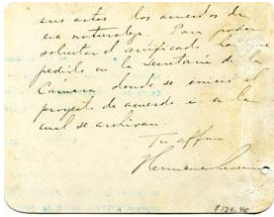 sus actos los acuerdos de
esa naturaleza. Para poder
solicitar el certificado hay que
pedirlo en la Secretaría de la
Cámara donde se inició el
proyecto de acuerdo i en la
cual se archivan.
Tu affmo
Hermano
7124.40